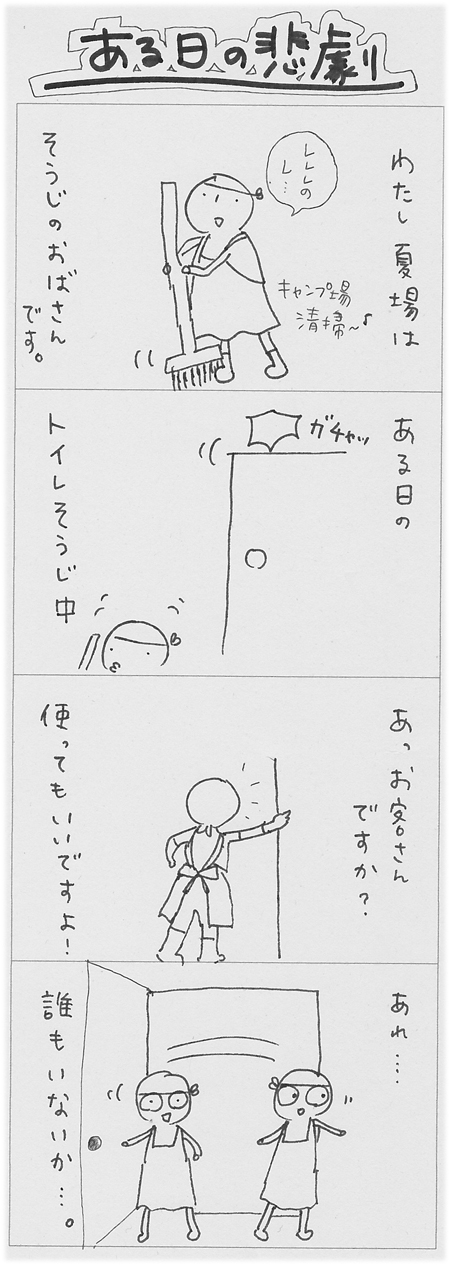 ある日の悲劇
わたし夏場は
レレレの
レ…
キャンプ場
清掃~♪
そうじのおばさん
です。
ある日の
ガチャッ
トイレそうじ中
あっお客さん
ですか?
使ってもいいですよ!
あれ……
誰もいないか…。